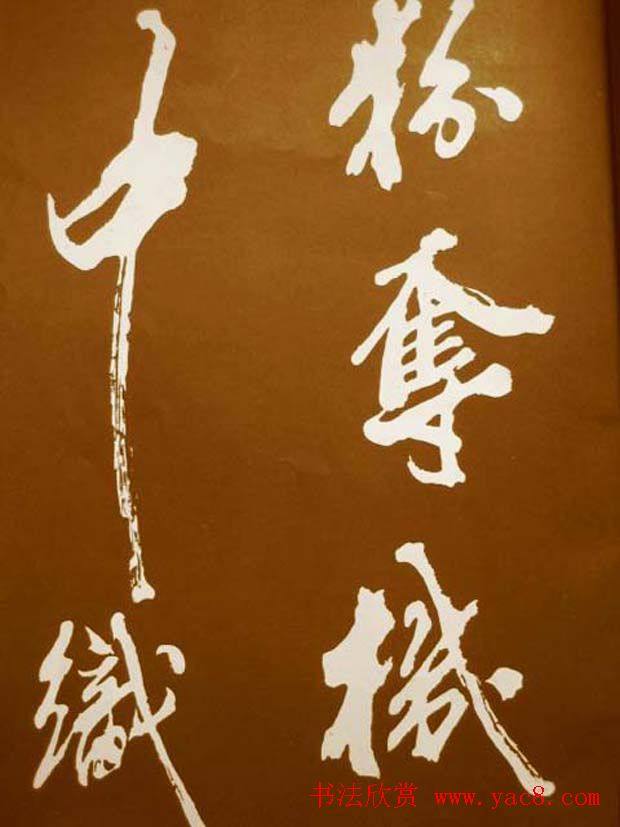 粉奪機
中織
书法欣赏 www.yac8.com